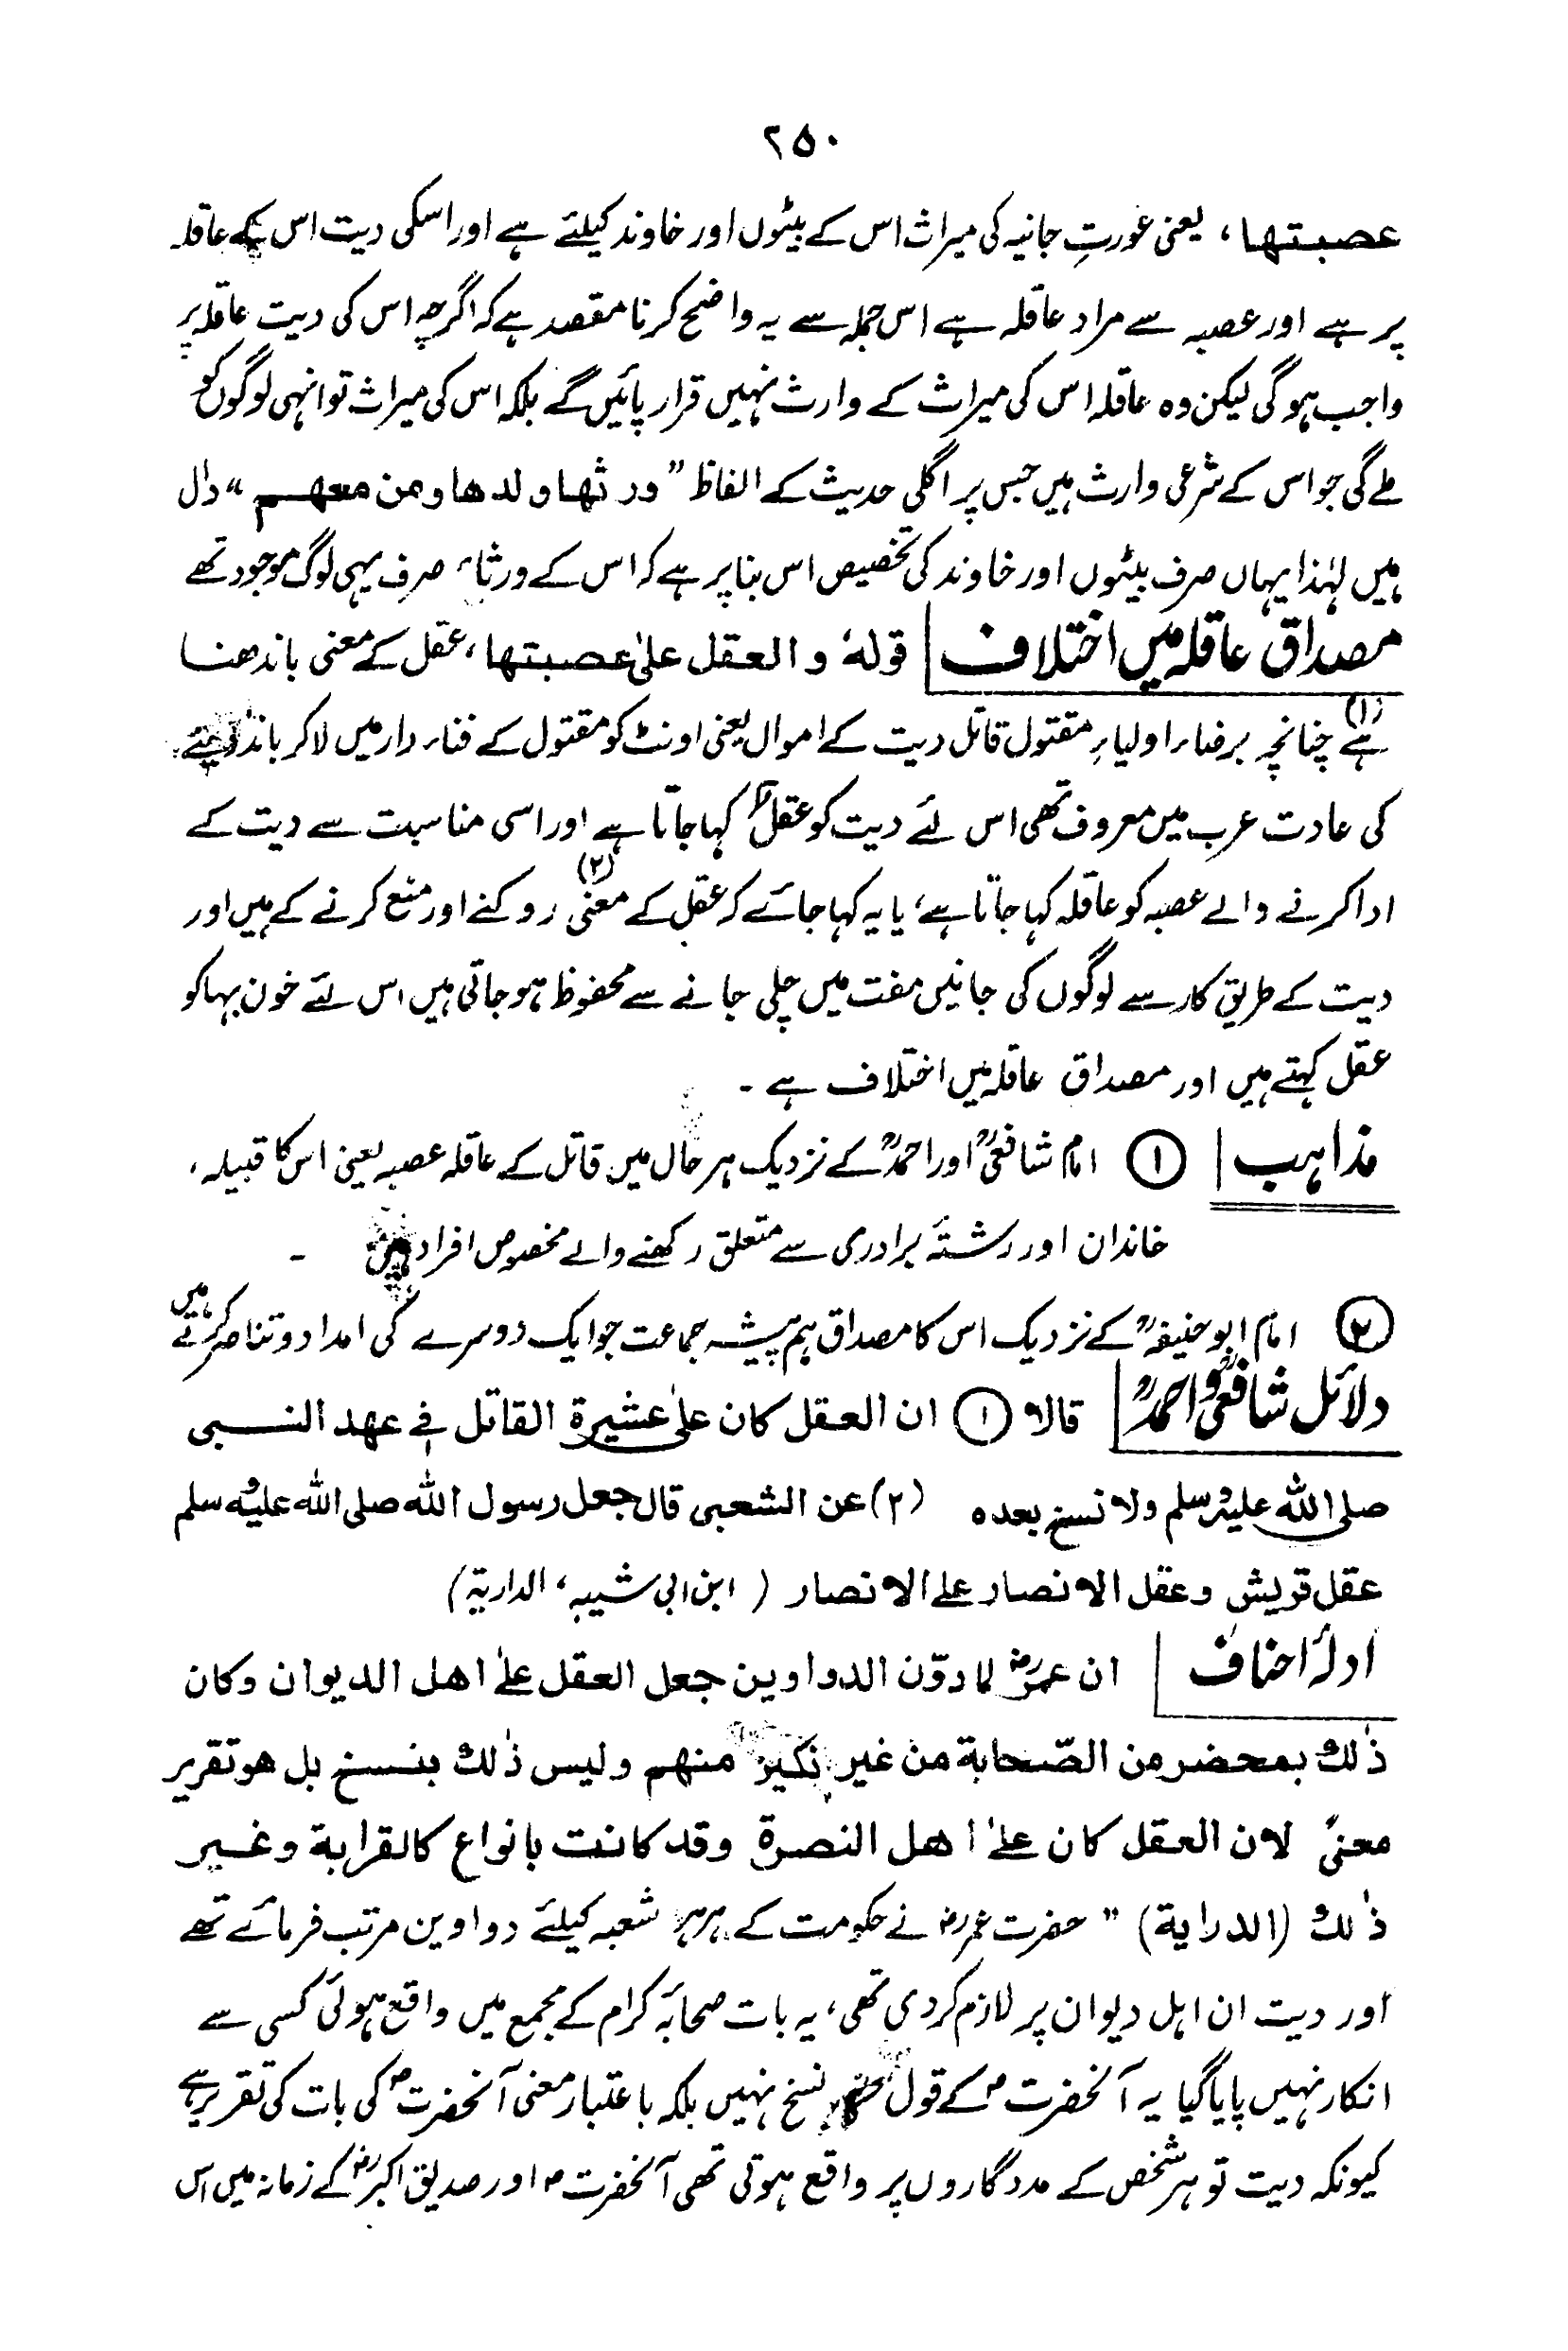 ۲۵۰
عصبتھا، یعنی عورتِ جانیہ کی میراث اس کے بیٹوں اور خاوند کیلئے ہے اور اسکی دیت اس کے عاقلہ
پر ہے اور عصبہ سے مراد عاقلہ ہے اس جملہ سے یہ واضح کرنا مقصد ہے کہ اگرچہ اس کی دیت عاقلہ پر
واجب ہوگی لیکن وہ عاقلہ اس کی میراث کے وارث نہیں قرار پائیں گے بلکہ اس کی میراث تو انہی لوگوں کو
ملے گی جو اس کے شرعی وارث ہیں جس پر اگلی حدیث کے الفاظ ”ورثھا ولدھا ومن معھم“ دال
ہیں لہٰذا یہاں صرف بیٹوں اور خاوند کی تخصیص اس بنا پر ہے کہ اس کے ورثاء صرف یہی لوگ موجود تھے
مصداق عاقلہ میں اختلاف | قولہٗ والعقل علیٰ عصبتھا، عقل کے معنی باندھنا
(۱) ہے چنانچہ برضاء اولیاءِ مقتول قاتل دیت کے اموال یعنی اونٹ کو مقتول کے فناء دار میں لاکر باندھ دینے
کی عادت عرب میں معروف تھی اس لئے دیت کو عقل کہا جاتا ہے اور اسی مناسبت سے دیت کے
ادا کرنے والے عصبہ کو عاقلہ کہا جاتا ہے، یا یہ کہا جائے کہ عقل کے معنی (۲) روکنے اور منع کرنے کے ہیں اور
دیت کے طریق کار سے لوگوں کی جانیں مفت میں چلی جانے سے محفوظ ہو جاتی ہیں اس لئے خون بہا کو
عقل کہتے ہیں اور مصداق عاقلہ میں اختلاف ہے ۔
مذاہب | ① امام شافعیؒ اور احمدؒ کے نزدیک ہر حال میں قاتل کے عاقلہ عصبہ یعنی اس کا قبیلہ،
خاندان اور رشتۂ برادری سے متعلق رکھنے والے مخصوص افراد ہیں ۔
② امام ابوحنیفہؒ کے نزدیک اس کا مصداق ہم پیشہ جماعت جو ایک دوسرے کی امداد و تناصر کرتے ہیں
دلائل شافعیؒ واحمدؒ | قالا ① ان العقل کان علیٰ عشیرة القاتل فی عھد النبی
صلی اللہ علیہ وسلم ولا نسخ بعدہ (۲) عن الشعبی قال جعل رسول اللہ صلی اللہ علیہ وسلم
عقل قریش وعقل الانصار علی الانصار (ابن ابی شیبہ، الداریۃ)
ادلۂ احناف | ان عمرؓ لما دوّن الدواوین جعل العقل علیٰ اھل الدیوان وکان
ذٰلك بمحضر من الصّحابة من غیر نکیر منھم ولیس ذٰلك بنسخ بل ھو تقریر
معنیً لان العقل کان علیٰ اھل النصرة وقد کانت بانواع کالقرابة وغیر
ذٰلك (الدرایة) ” حضرت عمرؓ نے حکومت کے ہر ہر شعبہ کیلئے دواوین مرتب فرمائے تھے
اور دیت ان اہل دیوان پر لازم کردی تھی، یہ بات صحابۂ کرام کے مجمع میں واقع ہوئی کسی سے
انکار نہیں پایا گیا یہ آنحضرتؐ کے قول نسخ نہیں بلکہ باعتبار معنی آنحضرتؐ کی بات کی تقریر ہے
کیونکہ دیت تو ہر شخص کے مددگاروں پر واقع ہوتی تھی آنحضرتؐ اور صدیق اکبرؓ کے زمانہ میں اس